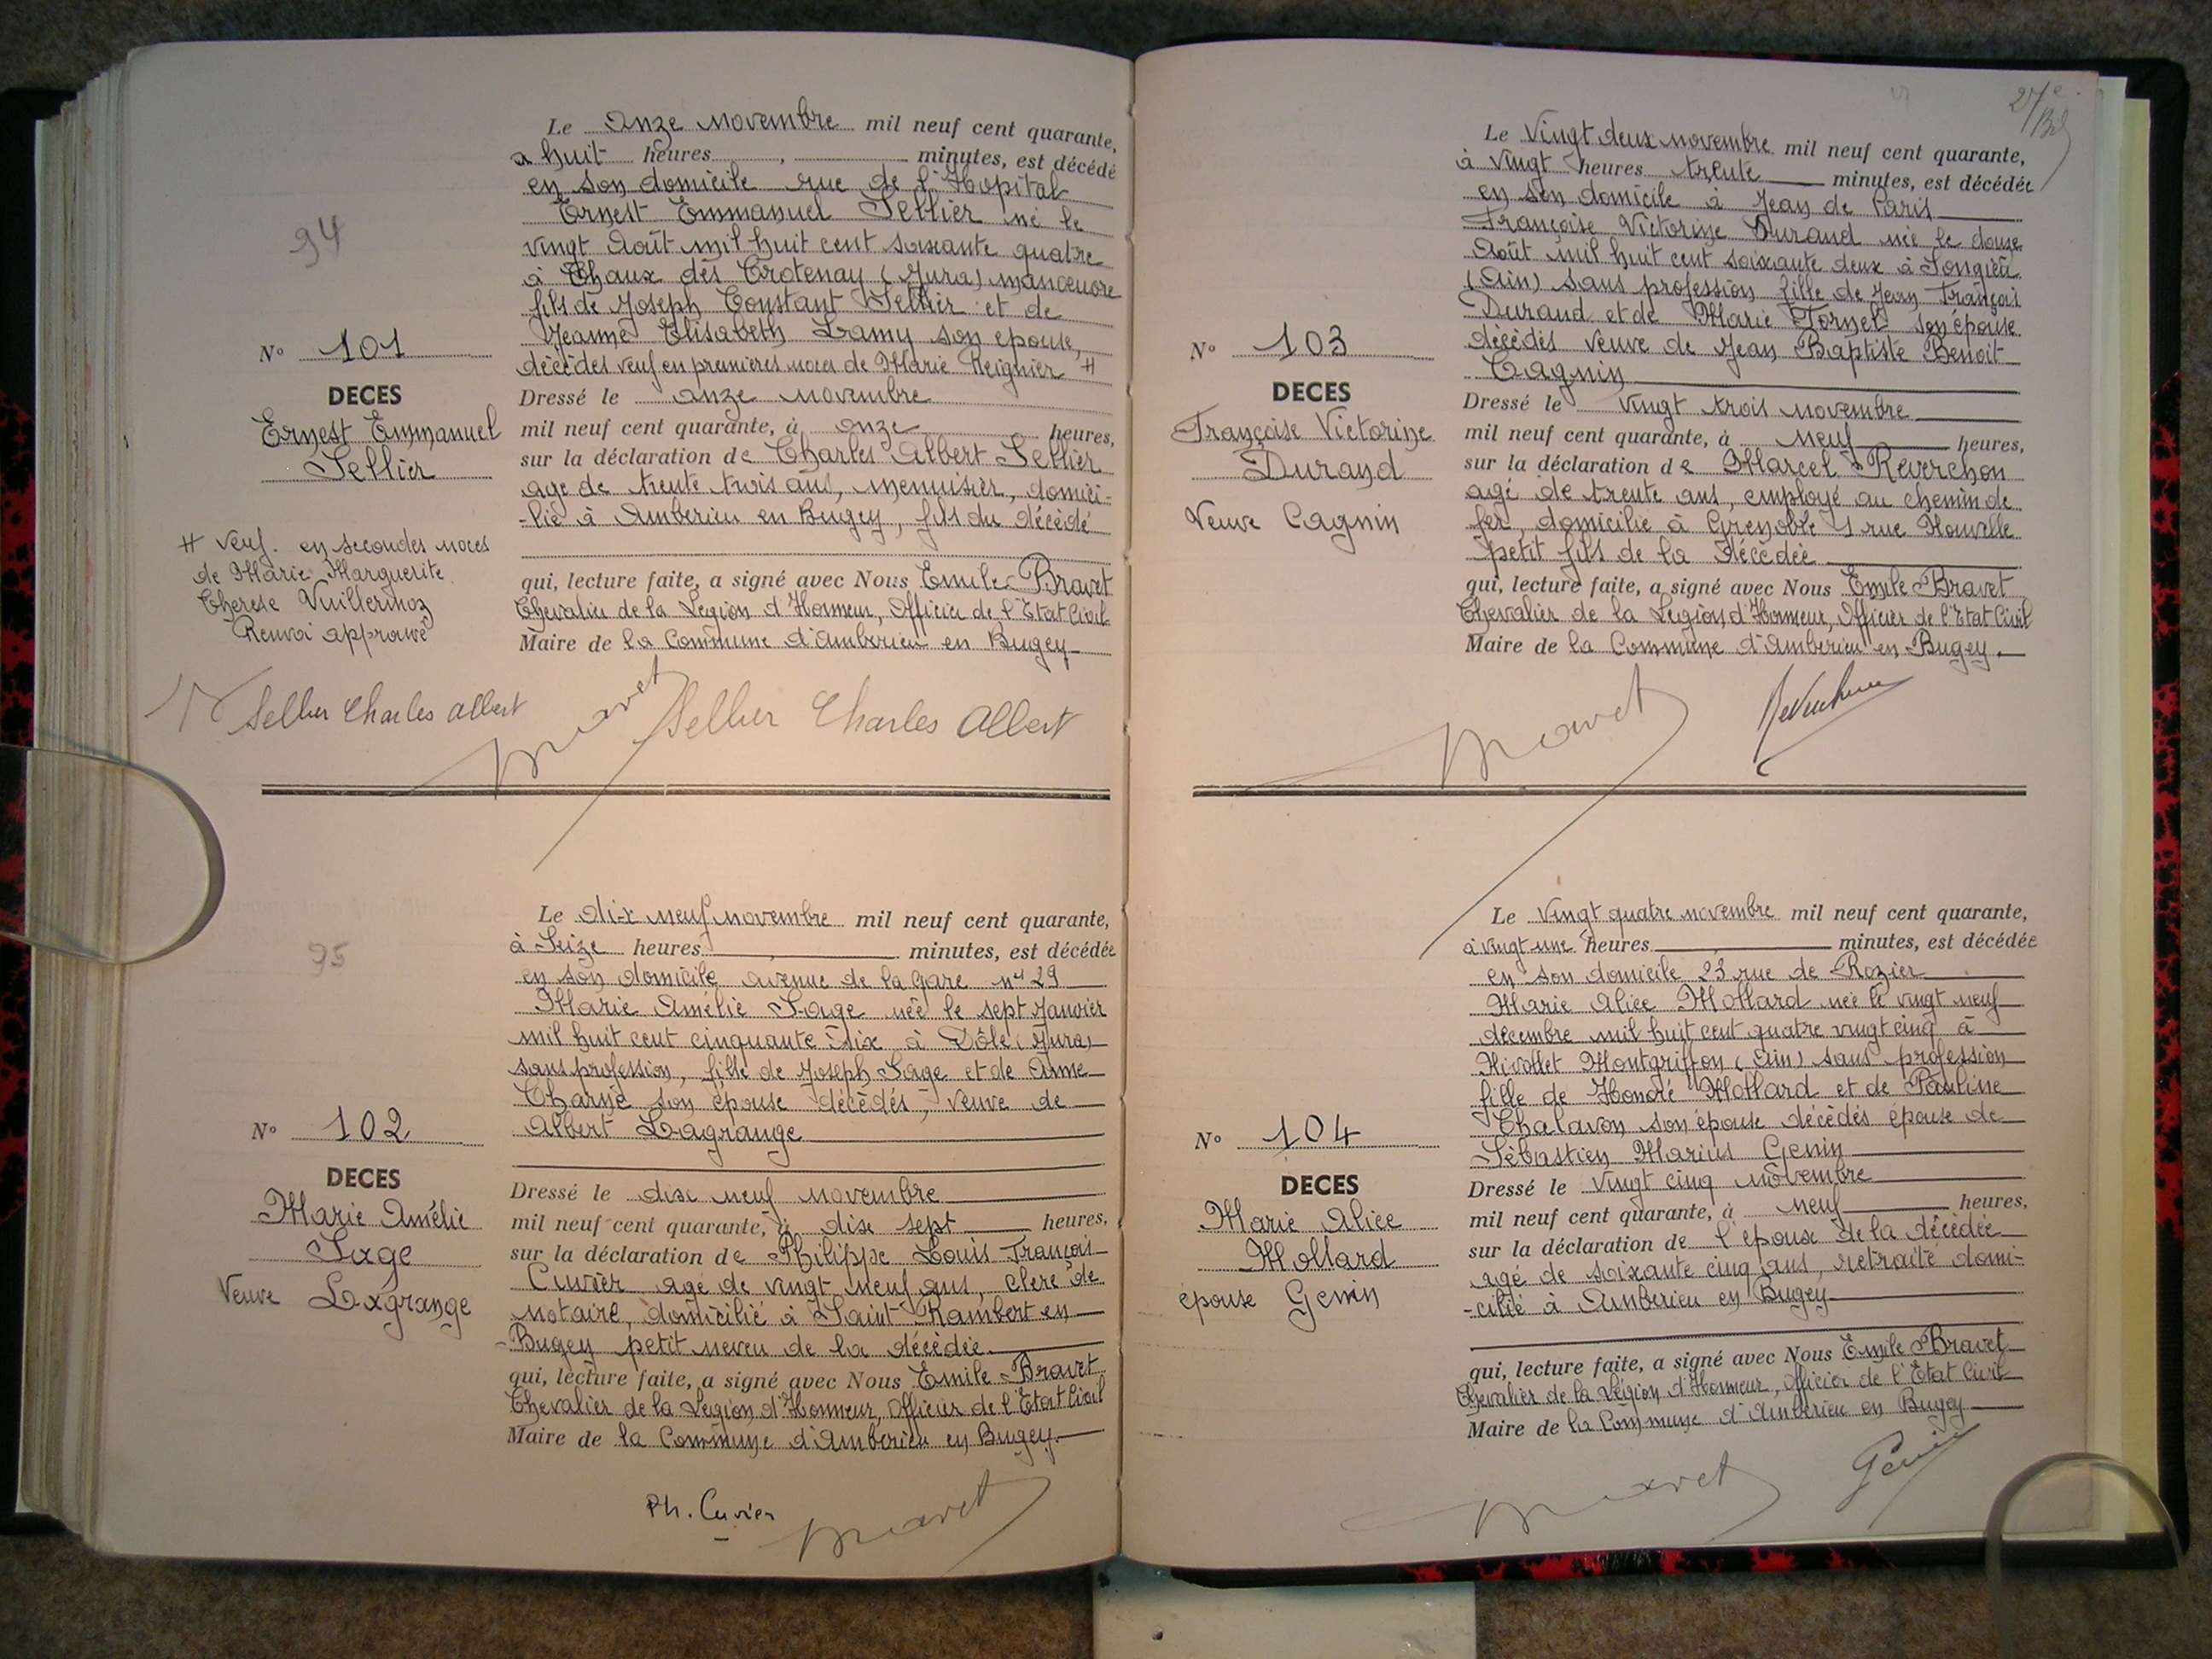 94
Nº 101
DECES
Ernest Emmanuel
Sellier
# veuf en secondes noces
de Marie Marguerite
Therese Vuillermoz
Renvoi approuvé
Sellier Charles Albert
Le onze novembre mil neuf cent quarante,
a huit heures, minutes, est décédé
en son domicile rue de l'Hopital
Ernest Emmanuel Sellier né le
vingt Août mil huit cent soixante quatre
à Chaux dès Crotenay (Jura) manœuvre
fils de Joseph Constant Sellier et de
Jeanne Elisabeth Lamy son epouse,
décédés veuf en premières noces de Marie Reignier #
Dressé le onze novembre
mil neuf cent quarante, à onze heures,
sur la déclaration de Charles Albert Sellier
age de trente trois ans, menuisier, domici-
-lié à Amberieu en Bugey, fils du décédé
qui, lecture faite, a signé avec Nous Emile Bravet
Chevalier de la Legion d'Honneur, Officier de l'Etat Civil
Maire de la Commune d'Amberieu en Bugey
Bravet
Sellier Charles Albert
95
Nº 102
DECES
Marie Amélie
Sage
Veuve Lagrange
Le dix neuf novembre mil neuf cent quarante,
à Seize heures, minutes, est décédée
en son domicile avenue de la gare nº 29
Marie Amélie Sage née le sept Janvier
mil huit cent cinquante six à Dôle (Jura)
sans profession, fille de Joseph Sage et de Anne
Charne son épouse décédés, veuve de
Albert Lagrange
Dressé le dix neuf novembre
mil neuf cent quarante, à dix sept heures,
sur la déclaration de Philippe Louis François
Cuvier agé de vingt neuf ans, clerc de
notaire, domicilié à Saint Rambert en
-Bugey petit neveu de la décédée
qui, lecture faite, a signé avec Nous Emile Bravet
Chevalier de la Legion d'Honneur, Officier de l'Etat Civil
Maire de la Commune d'Amberieu en Bugey.
Ph. Cuvier
Bravet
27e
Nº 103
DECES
Françoise Victorine
Durand
Veuve Cagnin
Le Vingt deux novembre mil neuf cent quarante,
à Vingt heures trente minutes, est décédée
en son domicile à Jean de Paris
Françoise Victorine Durand née le douze
Août mil huit cent soixante deux à Songieu
(Ain) sans profession fille de Jean François
Durand et de Marie Tornet son épouse
décédés veuve de Jean Baptiste Benoit
Cagnin
Dressé le vingt trois novembre
mil neuf cent quarante, à neuf heures,
sur la déclaration de Marcel Reverchon
agé de trente ans, employé au chemin de
fer, domicilié à Grenoble 1 rue Nouvelle
petit fils de la décédée
qui, lecture faite, a signé avec Nous Emile Bravet
Chevalier de la Legion d'Honneur, Officier de l'Etat Civil
Maire de la Commune d'Amberieu en Bugey.
Bravet
Reverchon
Nº 104
DECES
Marie Alice
Mollard
épouse Genin
Le Vingt quatre novembre mil neuf cent quarante,
à vingt une heures, minutes, est décédée
en son domicile 23 rue de Rozier
Marie Alice Mollard née le vingt neuf
décembre mil huit cent quatre vingt cinq à
Nivollet Montgriffon (Ain) sans profession
fille de Honoré Mollard et de Pauline
Chalavon son épouse décédés épouse de
Sébastien Marius Genin
Dressé le vingt cinq novembre
mil neuf cent quarante, à neuf heures,
sur la déclaration de l'époux de la décédée
agé de soixante cinq ans, retraité domi-
-cilié à Amberieu en Bugey
qui, lecture faite, a signé avec Nous Emile Bravet
Chevalier de la Légion d'Honneur, Officier de l'Etat Civil
Maire de la Commune d'Amberieu en Bugey
Bravet
Genin